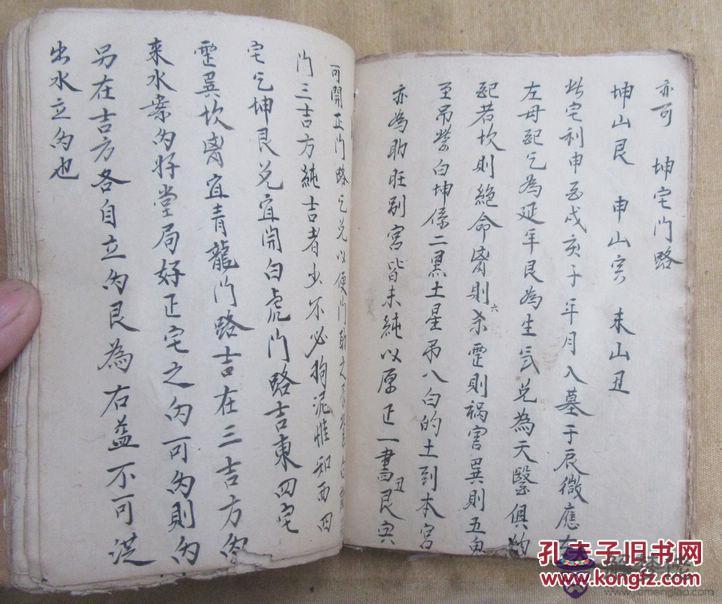 亦可 坤宅门路
坤山艮 申山寅 未山丑
此宅利申酉戌亥子年月入墓于辰微应在
左母配乞为延年艮为生氣兑为天醫俱的
配若坎則絕命离則六杀震則祸害巽則五鬼
至吊紫白坤係二黑土星吊八白的土到本宫
亦為助旺别宫皆未純以原正一書丑艮寅
可開正门路乞兑以便门
门三吉方純吉者少不必拘泥惟知西四
宅乞坤艮兑宜開白虎门路吉東四宅
震巽坎离宜青龍门路吉在三吉方向
来水案向好堂局好正宅之向可向則向
另在吉方各自立向艮為右益不可混
出水立向也
孔夫子旧书网
www.kongfz.com